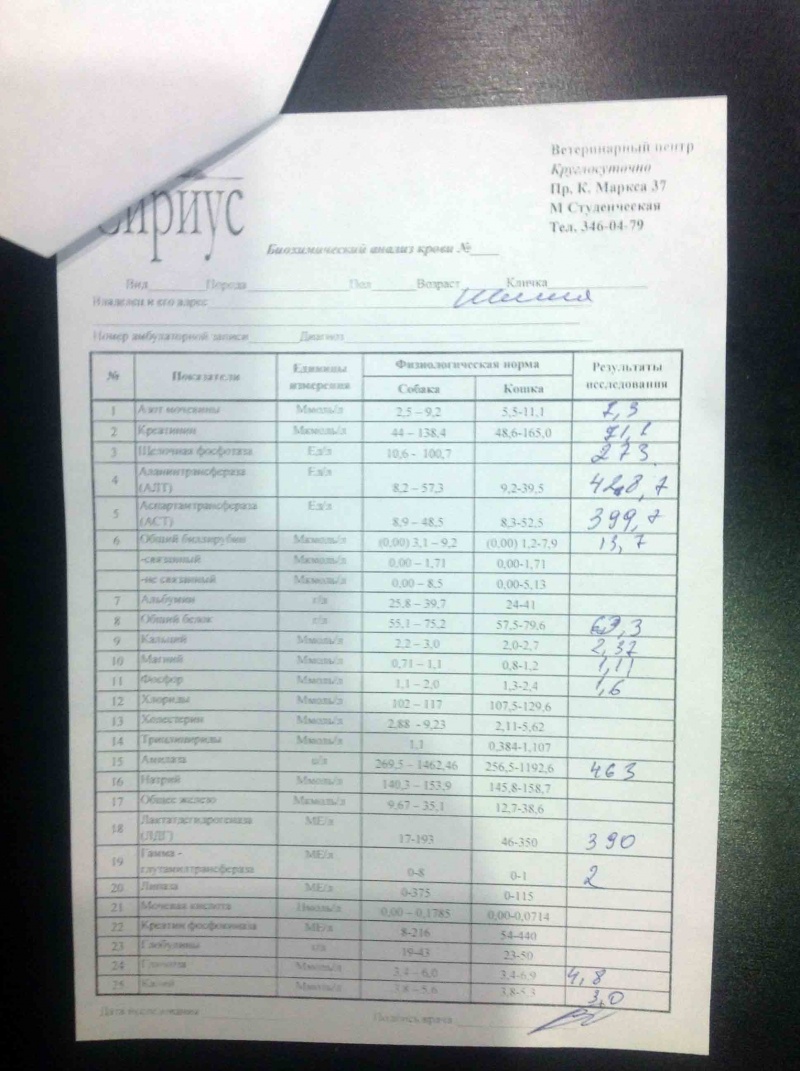 Сириус
Ветеринарный центр
Круглосуточно
Пр. К. Маркса 37
М Студенческая
Тел. 346-04-79
Биохимический анализ крови №____
Вид Порода Пол Возраст Кличка
Владелец и его адрес
Номер амбулаторной записи Диагноз
№ Показатели Единицы измерения Физиологическая норма Результаты исследования
Собака Кошка
1 Азот мочевины Ммоль/л 2,5 – 9,2 5,5-11,1
2 Креатинин Мкмоль/л 44 – 138,4 48,6-165,0
3 Щелочная фосфотаза Ед/л 10,6 - 100,7 273
4 Аланинтрансфераза (АЛТ) Ед/л 8,2 – 57,3 9,2-39,5 428,7
5 Аспартамтрансфераза (АСТ) Ед/л 8,9 – 48,5 8,3-52,5 399,7
6 Общий биллирубин Мкмоль/л (0,00) 3,1 – 9,2 (0,00) 1,2-7,9 13,7
-связанный Мкмоль/л 0,00 – 1,71 0,00-1,71
-не связанный Мкмоль/л 0,00 – 8,5 0,00-5,13
7 Альбумин г/л 25,8 – 39,7 24-41
8 Общий белок г/л 55,1 – 75,2 57,5-79,6
9 Кальций Ммоль/л 2,2 – 3,0 2,0-2,7 2,37
10 Магний Ммоль/л 0,71 – 1,1 0,8-1,2 1,11
11 Фосфор Ммоль/л 1,1 – 2,0 1,3-2,4 1,6
12 Хлориды Ммоль/л 102 – 117 107,5-129,6
13 Холестерин Ммоль/л 2,88 - 9,23 2,11-5,62
14 Триглицириды Ммоль/л 1,1 0,384-1,107
15 Амилаза 269,5 – 1462,46 256,5-1192,6 463
16 Натрий Ммоль/л 140,3 – 153,9 145,8-158,7
17 Общее железо Мкмоль/л 9,67 – 35,1 12,7-38,6
18 Лактатдегидрогеназа (ЛДГ) МЕ/л 17-193 46-350 390
19 Гамма - глутамилтрансфераза МЕ/л 0-8 0-1 2
20 Липаза МЕ/л 0-375 0-115
21 Мочевая кислота 0,00 – 0,1785 0,00-0,0714
22 Креатин фосфокиназа МЕ/л 8-216 54-440
23 Глобулины г/л 19-43 23-50
24 Глюкоза Ммоль/л 3,4 – 6,0 3,4-6,9 4,8
25 Калий Ммоль/л 3,8 – 5,6 3,8-5,3 3,0
Дата исследования Подпись врача